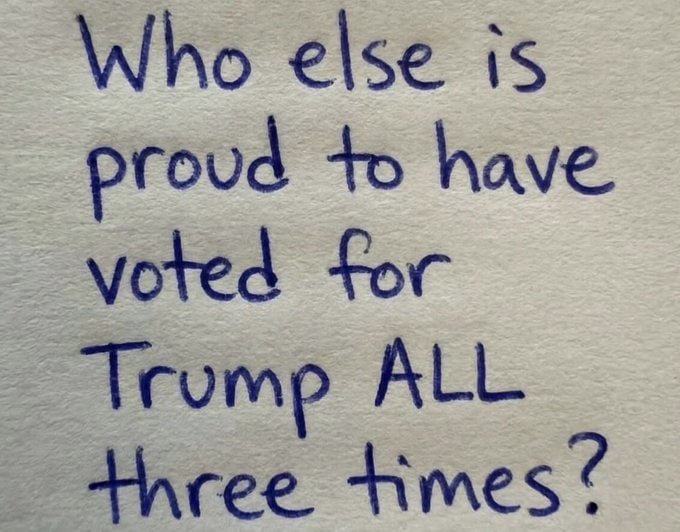 Who else is
proud to have
voted for
Trump ALL
three times?